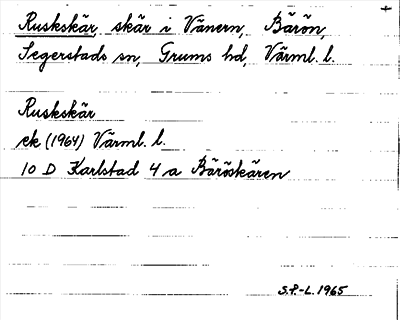 Ruskskär, skär i Vänern, Bärön,
Segerstads sn, Grums hd, Värml. l.
Ruskskär
ek (1964) Värml. l.
10 D Karlstad 4 a Bäröskären
S.P.-L. 1965